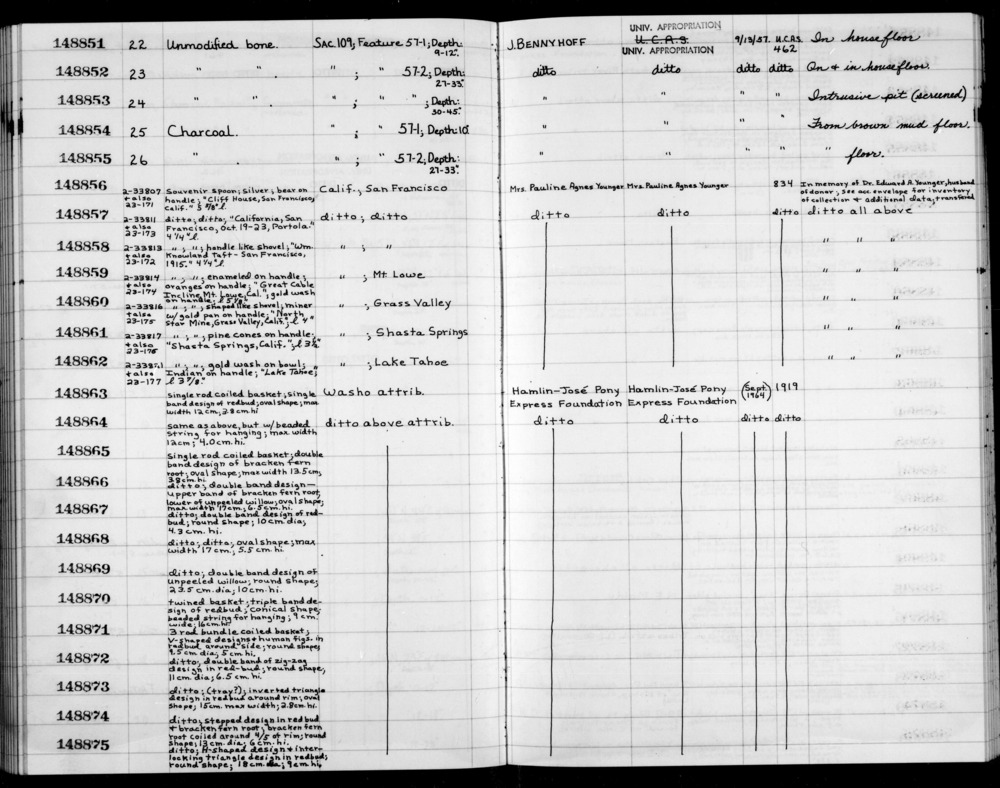 UNIV. APPROPRIATION
148851 22 Unmodified bone. SAC.109; Feature 57-1; Depth: 9-12". J. BENNYHOFF U.C.A.S. UNIV. APPROPRIATION 9/13/57. U.C.A.S. 462 In house floor
148852 23 " " . " ; " 57-2; Depth: 27-33". ditto ditto ditto ditto On & in house floor.
148853 24 " " . " ; " " ; Depth: 30-45". " " " " Intrusive pit (screened)
148854 25 Charcoal. " ; " 57-1; Depth: 10". " " " " From brown mud floor.
148855 26 " . " ; " 57-2; Depth: 27-33". " " " " floor.
148856 2-33807 Souvenir spoon; silver; bear on Calif., San Francisco Mrs. Pauline Agnes Younger Mrs. Pauline Agnes Younger 834 In memory of Dr. Edward A. Younger, husband
+ also handle; "Cliff House, San Francisco, of donor; See acc. envelope for inventory
23-171 Calif." l 5 7/8" of collection & additional data, transferred
148857 2-33811 ditto; ditto; "California, San ditto ; ditto ditto ditto ditto ditto all above
+ also Francisco, Oct. 19-23, Portola."
23-173 4 1/4" l.
148858 2-33813 " ; " ; handle like shovel; "Wm. " ; " " " "
+ also Knowland Taft - San Francisco,
23-172 1915." 4 1/4" l
148859 2-33814 " ; " ; enameled on handle; " ; Mt Lowe " " "
+ also oranges on handle; "Great Cable
23-174 Incline, Mt. Lowe, Cal."; gold wash
on handle; l 5 1/8"
148860 2-33816 " ; " ; shaped like shovel; miner " ; Grass Valley " " "
+ also w/ gold pan on handle; "North
23-175 Star Mine, Grass Valley, Calif."; l 4"
148861 2-33817 " ; " ; pine cones on handle; " ; Shasta Springs " " "
+ also "Shasta Springs, Calif."; l 3 1/2"
23-176
148862 " ; " ; gold wash on bowl; " ; Lake Tahoe " " "
+ also Indian on handle; "Lake Tahoe;
23-177 l 3 7/8."
148863 Single rod coiled basket; single Washo attrib. Hamlin-José Pony Hamlin-José Pony (Sept. 1964) 1919
band design of redbud; oval shape; max Express Foundation Express Foundation
width 12 cm; 3.8 cm. hi
148864 same as above, but w/ beaded ditto above attrib. ditto ditto ditto ditto
string for hanging; max width
12cm; 4.0cm. hi.
148865 Single rod coiled basket; double
band design of bracken fern
root; oval shape; max width 13.5 cm;
3.8 cm. hi
148866 ditto; double band design—
upper band of bracken fern root,
lower of unpeeled willow; oval shape;
max width 17cm; 6.5 cm. hi.
148867 ditto; double band design of red-
bud; round shape; 10 cm dia;
4.3 cm. hi.
148868 ditto; ditto, oval shape; max
width 17 cm.; 5.5 cm. hi.
148869 ditto; double band design of
unpeeled willow; round shape;
23.5 cm. dia; 10 cm. hi.
148870 twined basket; triple band de-
sign of redbud; conical shape;
beaded string for hanging; 9 cm.
wide; 16cm. hi
148871 3 rod bundle coiled basket;
V-shaped designs + human figs. in
redbud around side; round shape;
9.5 cm. dia; 5 cm. hi.
148872 ditto; double band of zig-zag
design in red-bud; round shape;
11 cm. dia; 6.5 cm. hi.
148873 ditto; (tray?); inverted triangle
design in redbud around rim; oval
shape; 15 cm. max width; 2.8cm. hi.
148874 ditto; stepped design in redbud
+ bracken fern root; bracken fern
root coiled around 4/5 of rim; round
shape; 13 cm. dia; 6 cm. hi.
148875 ditto; H-shaped design + inter-
locking triangle design in redbud;
round shape; 18 cm. dia; 9 cm. hi.